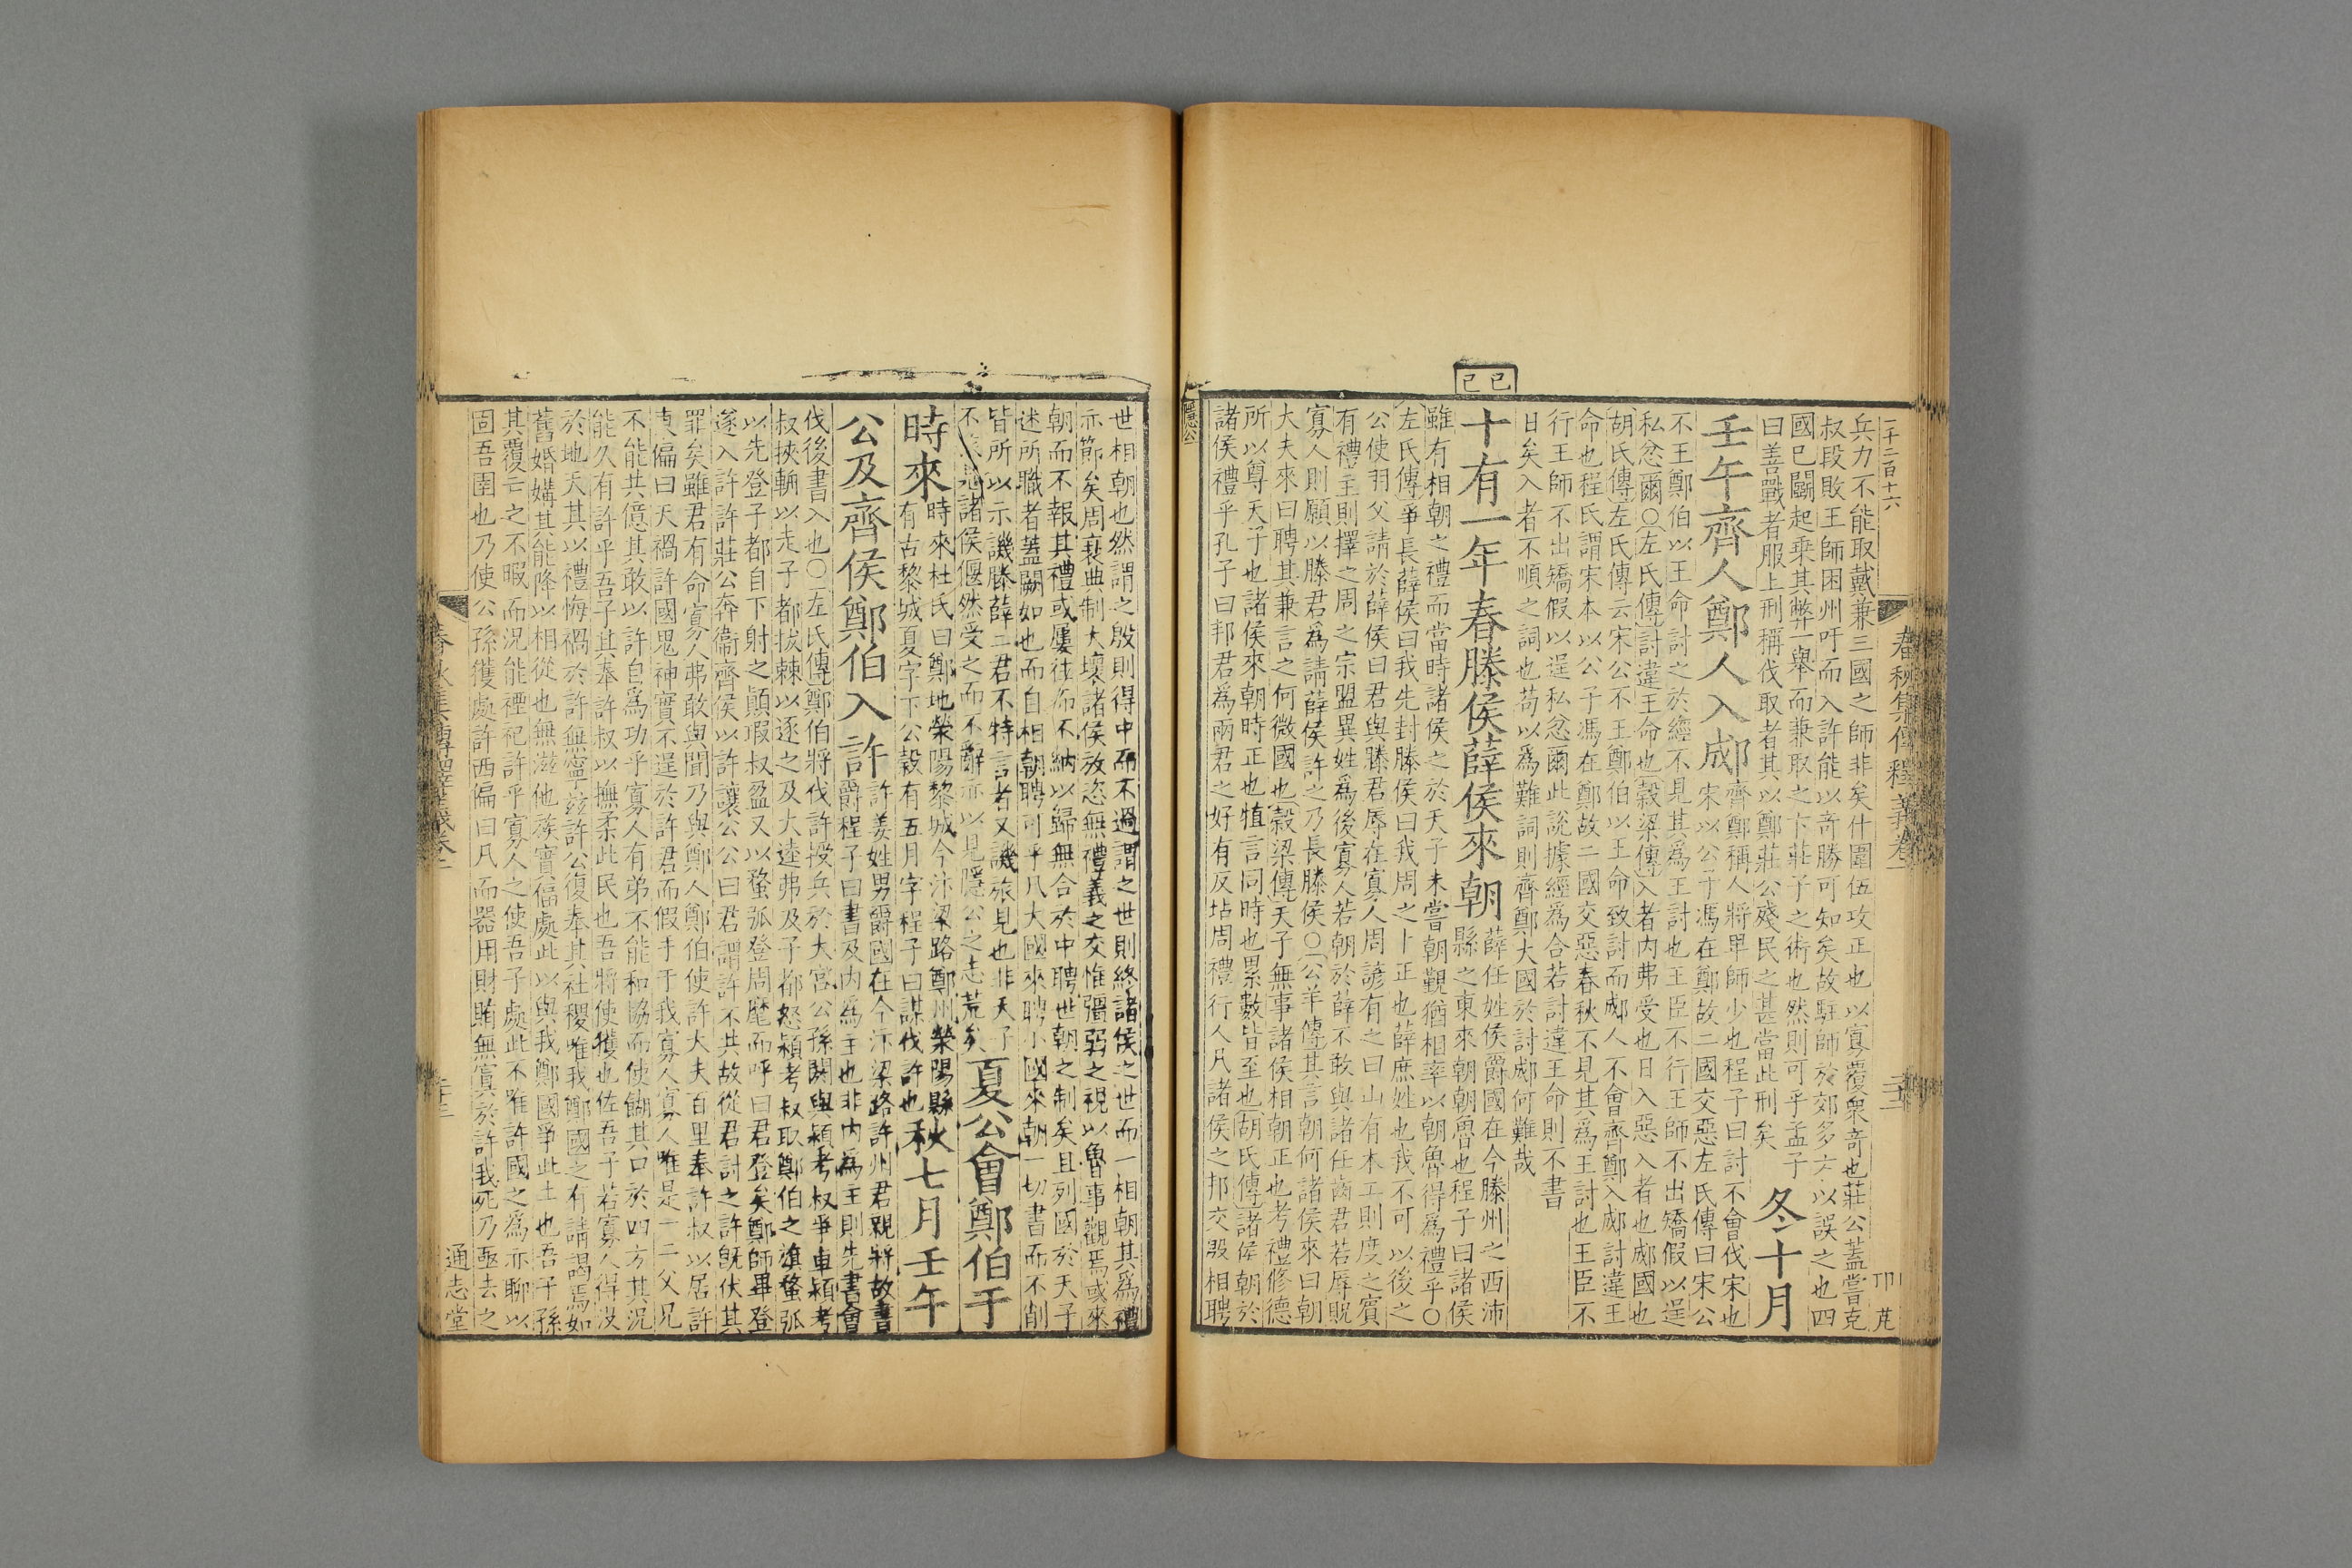 兵力不能取戴兼三國之師非矣什圍伍攻正也以寡覆衆奇也莊公蓋嘗克
叔段敗王師困州吁而入許能以奇勝可知矣故駐師於郊多方以誤之也四
國已鬬起乘其弊一舉而兼取之卞莊子之術也然則可乎孟子
曰善戰者服上刑稱伐取者其以鄭莊公殘民之甚當此刑矣
冬十月
壬午齊人鄭人入郕
齊鄭稱人將卑師少也程子曰討不會伐宋也
宋以公子馮在鄭故二國交惡左氏傳曰宋公
不王鄭伯以王命討之於經不見其為王討也王臣不行王師不出矯假以逞
私忿爾○左氏傳討違王命也穀梁傳入者内弗受也日入惡入者也郕國也
胡氏傳左氏傳云宋公不王鄭伯以王命致討而郕人不會齊鄭入郕討違王
命也程氏謂宋本以公子馮在鄭故二國交惡春秋不見其為王討也王臣不
行王師不出矯假以逞私忿爾此說據經為合若討違王命則不書
日矣入者不順之詞也苟以為難詞則齊鄭大國於討郕何難哉
己巳
十有一年春滕侯薛侯來朝
薛任姓侯爵國在今滕州之西沛
縣之東來朝朝魯也程子曰諸侯
雖有相朝之禮而當時諸侯之於天子未嘗朝覲猶相率以朝魯得為禮乎○
左氏傳爭長薛侯曰我先封滕侯曰我周之卜正也薛庶姓也我不可以後之
公使羽父請於薛侯曰君與滕君辱在寡人周諺有之曰山有木工則度之賓
有禮主則擇之周之宗盟異姓為後寡人若朝於薛不敢與諸任齒君若辱貺
寡人則願以滕君為請薛侯許之乃長滕侯○公羊傳其言朝何諸侯來曰朝
大夫來曰聘其兼言之何微國也穀梁傳天子無事諸侯相朝正也考禮修德
所以尊天子也諸侯來朝時正也犆言同時也累數皆至也胡氏傳諸侯朝於
諸侯禮乎孔子曰邦君為兩君之好有反坫周禮行人凡諸侯之邦交殷相聘
世相朝也然謂之殷則得中而不過謂之世則終諸侯之世而一相朝其為禮
亦節矣周衰典制大壞諸侯放恣無禮義之交惟彊弱之視以魯事觀焉或來
朝而不報其禮或屢往而不納以歸無合於中聘世朝之制矣且列國於天子
述所職者蓋闕如也而自相朝聘可乎凡大國來聘小國來朝一切書而不削
皆所以示譏滕薛二君不特言者又譏旅見也非天子
不旅見諸侯偃然受之而不辭亦以見隱公之志荒矣
夏公會鄭伯于
時來
時來杜氏曰鄭地滎陽黎城今汴梁路鄭州滎陽縣
有古黎城夏字下公穀有五月字程子曰謀伐許也
秋七月壬午
公及齊侯鄭伯入許
許姜姓男爵國在今汴梁路許州君親將故書
爵程子曰書及内為主也非内為主則先書會
伐後書入也○左氏傳鄭伯將伐許授兵於大宮公孫閼與潁考叔爭車潁考
叔挾輈以走子都拔棘以逐之及大逵弗及子都怒潁考叔取鄭伯之旗蝥弧
以先登子都自下射之顛瑕叔盈又以蝥弧登周麾而呼曰君登矣鄭師畢登
遂入許許莊公奔衞齊侯以許讓公公曰君謂許不共故從君討之許既伏其
罪矣雖君有命寡人弗敢與聞乃與鄭人鄭伯使許大夫百里奉許叔以居許
東偏曰天禍許國鬼神實不逞於許君而假手于我寡人寡人唯是一二父兄
不能共億其敢以許自為功乎寡人有弟不能和協而使餬其口於四方其況
能久有許乎吾子其奉許叔以撫柔此民也吾將使獲也佐吾子若寡人得沒
於地天其以禮悔禍於許無寧兹許公復奉其社稷唯我鄭國之有請謁焉如
舊婚媾其能降以相從也無滋他族實偪處此以與我鄭國爭此土也吾子孫
其覆亡之不暇而況能禋祀許乎寡人之使吾子處此不唯許國之為亦聊以
固吾圉也乃使公孫獲處許西偏曰凡而器用財賄無寘於許我死乃亟去之
一千二百十六
春秋集傳釋義卷一
三十二
隱公
通志堂